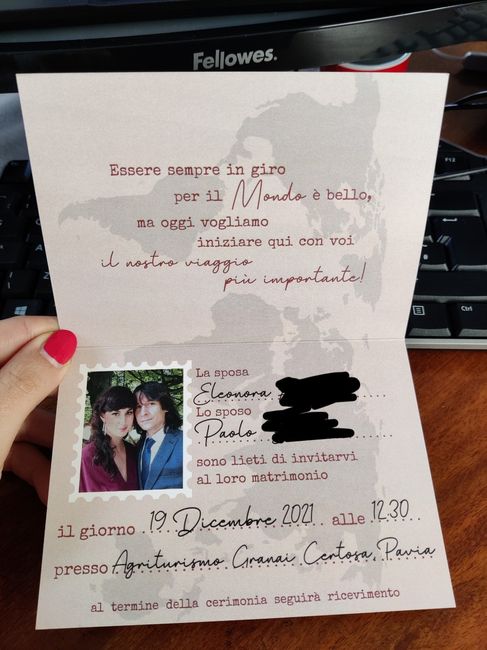 Fellowes.
F12
Essere sempre in giro
per il Mondo è bello,
ma oggi vogliamo
iniziare qui con voi
il nostro viaggio
più importante!
La sposa
Eleonora
Lo sposo
Paolo
sono lieti di invitarvi
al loro matrimonio
il giorno 19 Dicembre 2021 alle 12.30
presso Agriturismo Granai Certosa, Pavia
al termine della cerimonia seguirà ricevimento